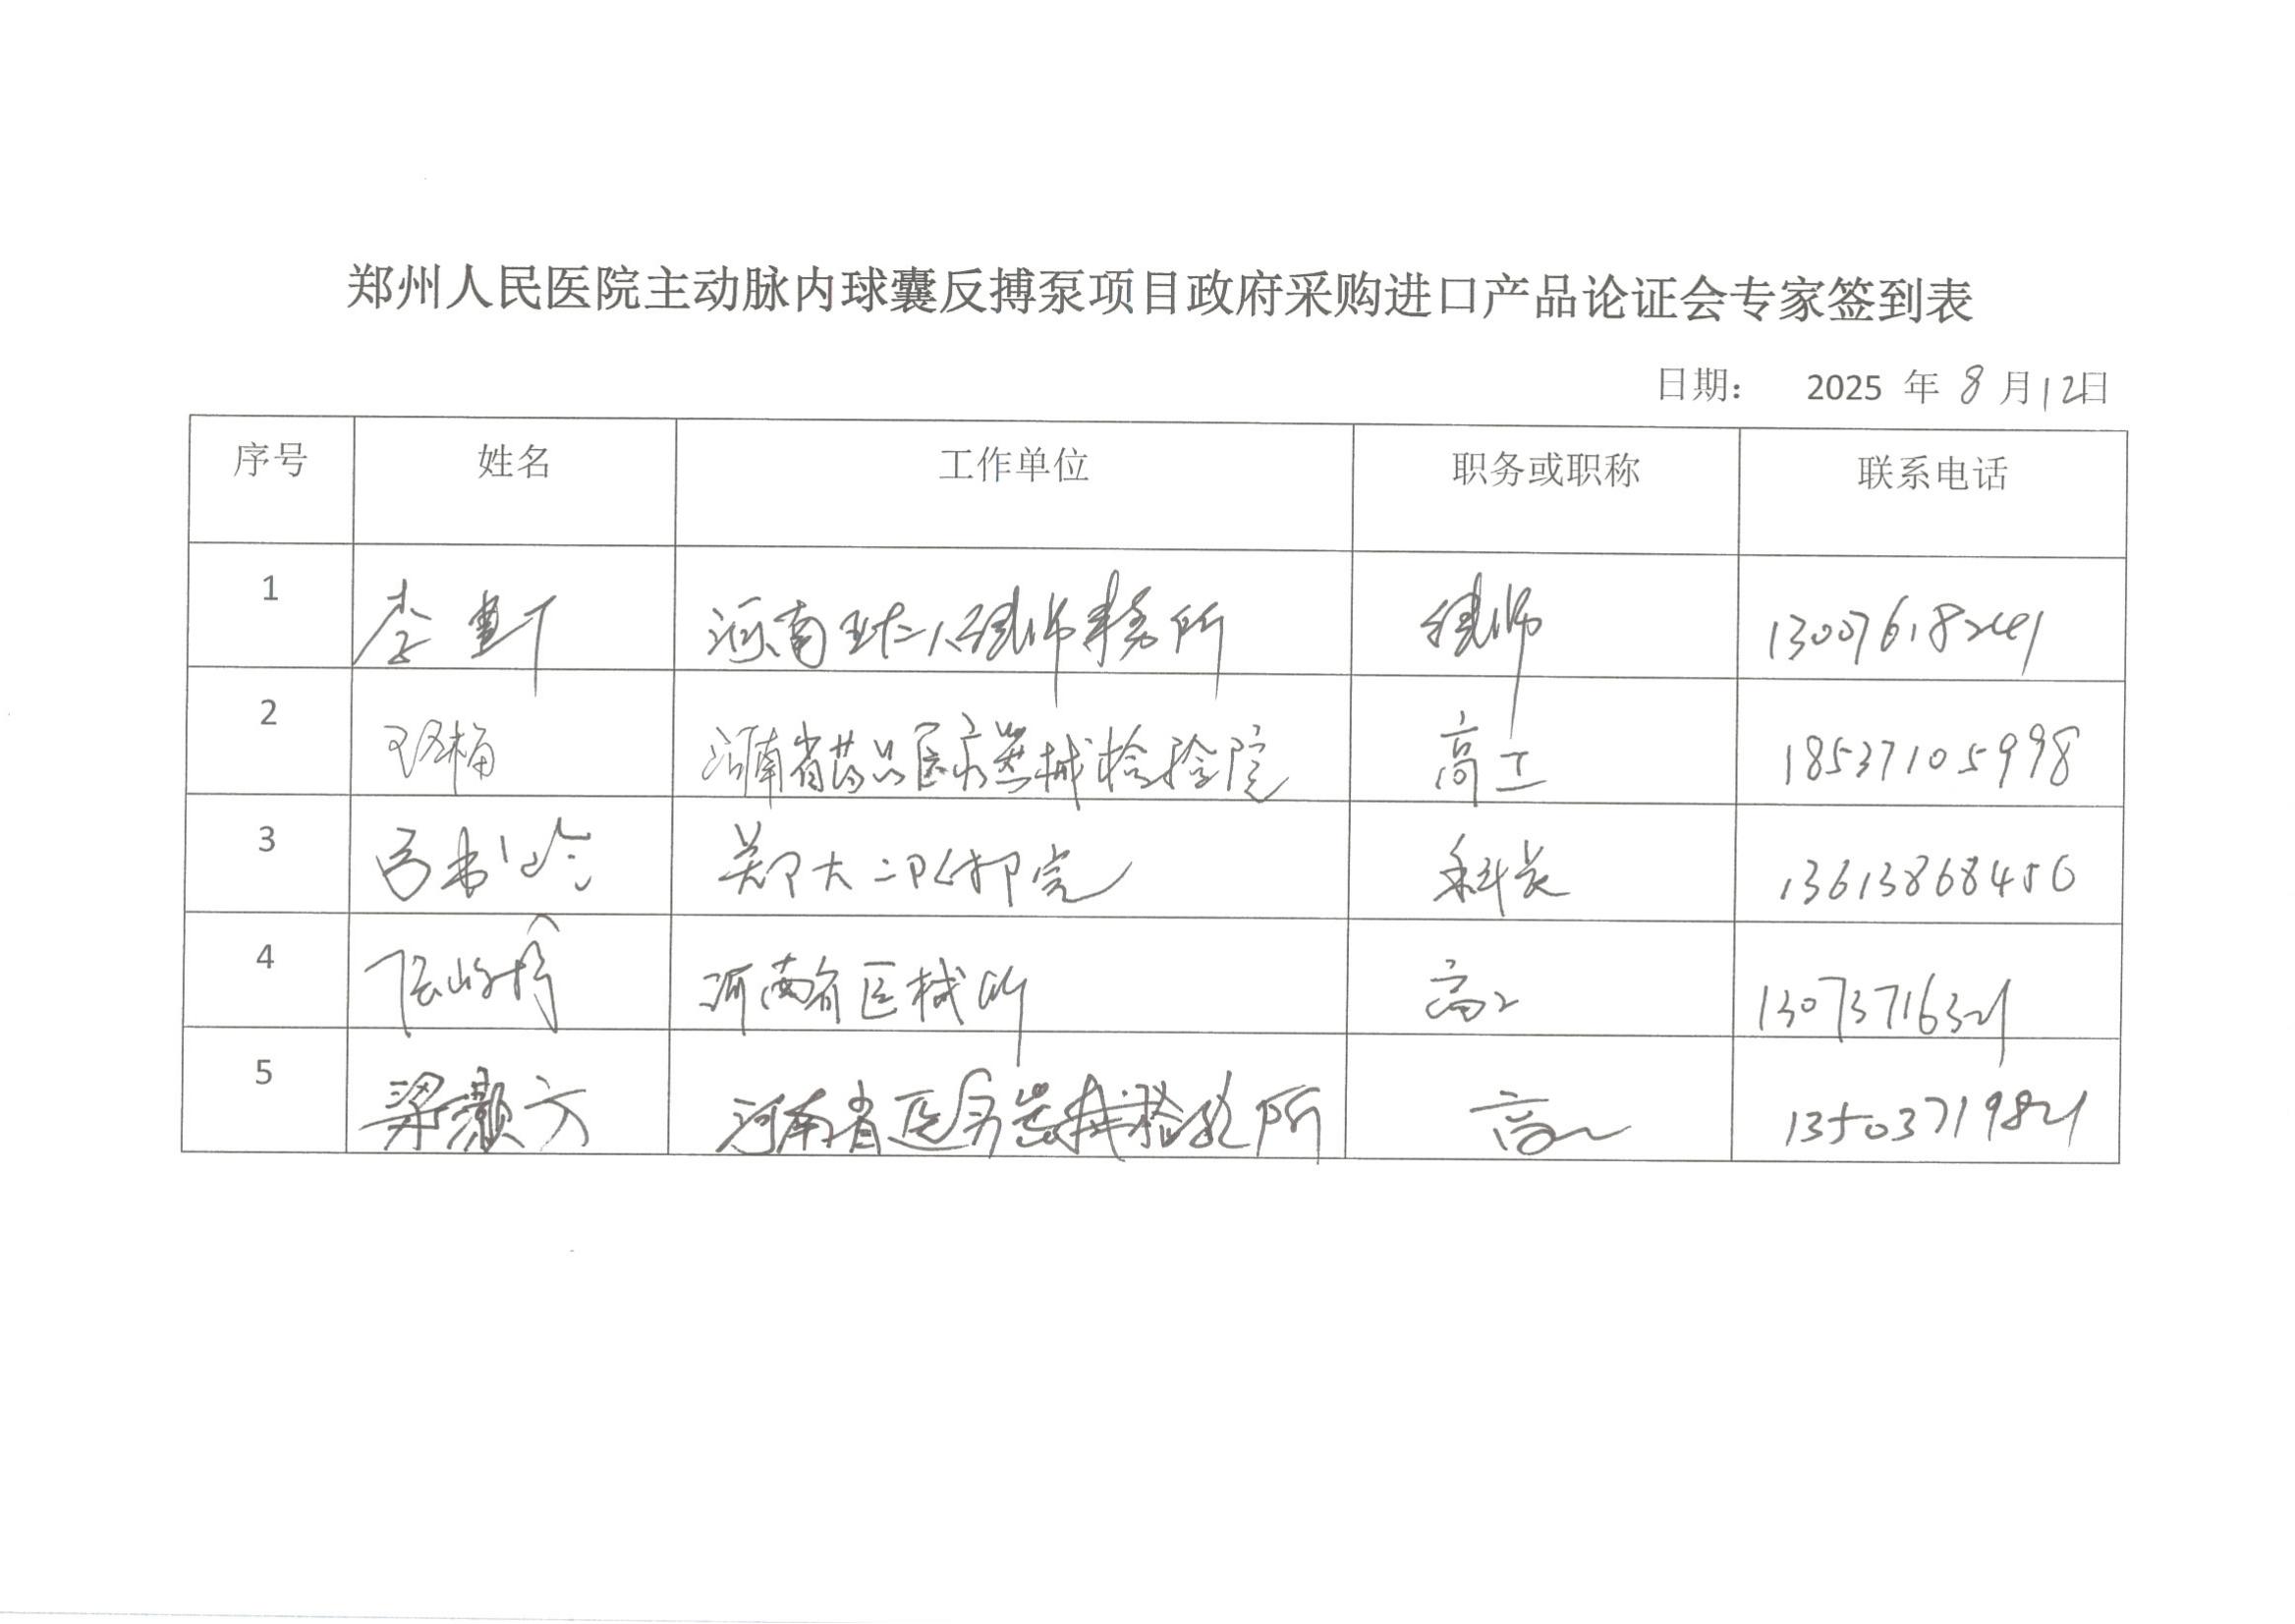 郑州人民医院主动脉内球囊反搏泵项目政府采购进口产品论证会专家签到表
日期: 2025 年 8 月 12 日
序号 姓名 工作单位 职务或职称 联系电话
1 李 河南 律师事务所 律师 13007618241
2 河南省药品医疗器械检验院 高工 18537105998
3 郑大二附院 科长 13613868456
4 河南省医械所 高工 13073716321
5 梁颢方 河南省医疗器械检验所 高工 13503719821